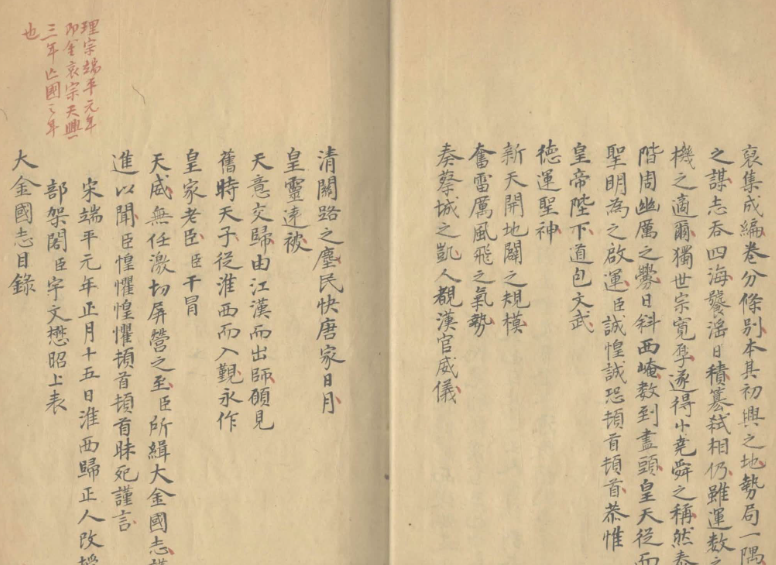 裒集成編卷分條別本其初興之地勢局一隅
之謀志吞四海鬷滛日積簒弒相仍雖運數之
機之適爾獨世宗寛厚遂得小堯舜之稱然泰
階周幽厲之釁日斜西崦数到盡頭皇天從而
聖明為之啟運臣誠惶誠恐頓首頓首恭惟
皇帝陛下道包文武
徳運聖神
新天開地闢之規模
奮雷厲風飛之氣勢
奏蔡城之凱人覩漢官威儀
清闕路之塵民快唐家日月
皇靈逹被
天意交歸由江漢而出師願見
舊時天子從淮西而入覲永作
皇家老臣臣干冒
天威無任激切屏營之至臣所緝大金國志謹
進以聞臣惶懼惶懼頓首頓首昧死謹言
宋端平元年正月十五日淮西歸正人改授
部架閣臣宇文懋昭上表
大金國志目錄
理宗端平元年
即金哀宗天興
三年亾國之年
也